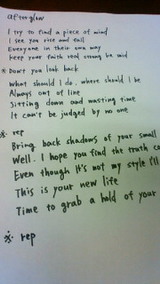 afterglow
I try to find a piece of mind
I see you rise and fall
Everyone in their own way
Keep your faith real strong be mid
※ Don't you look back
What should I do, where should I be
Always out of line
Sitting down and wasting time
It can't be judged by no one
※ rep
Bring back shadows of your small
Well. I hope you find the truth co
Even though It's not my style I'll
This is your new life
Time to grab a hold of your
※ rep